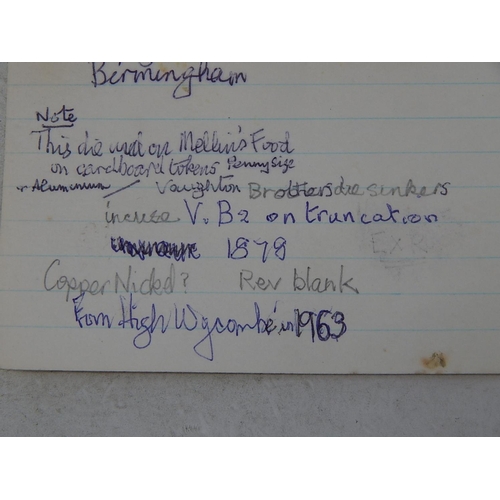 Birmingham
Note
This die used on Mellin's Food
on cardboard tokens Penny Size
or Aluminium / Vaughton Brothers die sinkers
incuse V. Bs on truncation
1879
Copper Nickel? Rev blank
From High Wycombe in 1963